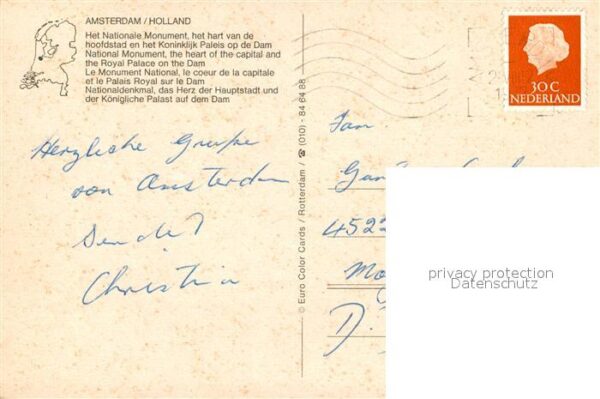 AMSTERDAM / HOLLAND
Het Nationale Monument, het hart van de
hoofdstad en het Koninklijk Paleis op de Dam
National Monument, the heart of the capital and
the Royal Palace on the Dam
Le Monument National, le coeur de la capitale
et le Palais Royal sur le Dam
Nationaldenkmal, das Herz der Hauptstadt und
der Königliche Palast auf dem Dam
30 C
NEDERLAND
Herzliche Grüße
von Amsterdam
sendet
Christina
© Euro Color Cards / Rotterdam / ☎ (010) - 84 64 88
Fam.
452
D.
privacy protection
Datenschutz